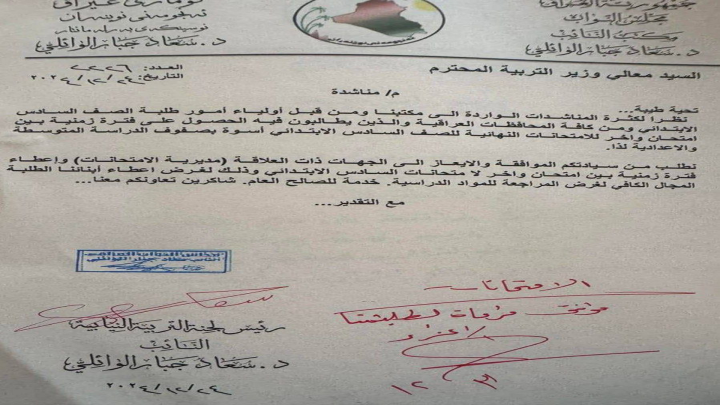 جمهورية العراق
مجلس النواب
مكتب النائب
د. سعاد جبار الوائلي
العدد: ٢٢٢٦
التاريخ: ٢٠٢٤/١٢/٢٤
السيد معالي وزير التربية المحترم
م/ مناشدة
تحية طيبة...
نظرا لكثرة المناشدات الواردة الى مكتبنا ومن قبل أولياء أمور طلبة الصف السادس
الابتدائي ومن كافة المحافظات العراقية والذين يطالبون فيه الحصول على فترة زمنية بين
امتحان واخر للامتحانات النهائية للصف السادس الابتدائي أسوة بصفوف الدراسة المتوسطة
والاعدادية لذا.
نطلب من سيادتكم الموافقة والايعاز الى الجهات ذات العلاقة (مديرية الامتحانات) وإعطاء
فترة زمنية بين امتحان واخر لا متحانات السادس الابتدائي وذلك لغرض اعطاء أبنائنا الطلبة
المجال الكافي لغرض المراجعة للمواد الدراسية. خدمة للصالح العام. شاكرين تعاونكم معنا...
مع التقدير...
الامتحانات
موافق
١٢
رئيس لجنة التربية النيابية
النائب
د. سعاد جبار الوائلي
٢٠٢٤/١٢/٢٤